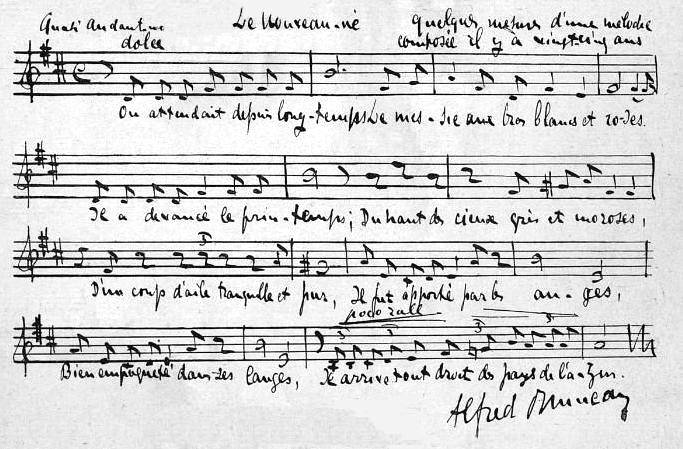 Quasi andantino Le Nouveau-né quelques mesures d'une mélodie
dolce composée il y a vingt cinq ans
On attendait depuis long-temps Le mes-sie aux bras blancs et ro-ses.
Il a devancé le prin-temps; Du haut des cieux gris et moroses,
D'un coup d'aile tranquille et pur, Il fut apporté par les an-ges,
poco rall
Bien empaqueté dans ses langes, Il arrive tout droit des pays de l'a-zur.
Alfred Bruneau